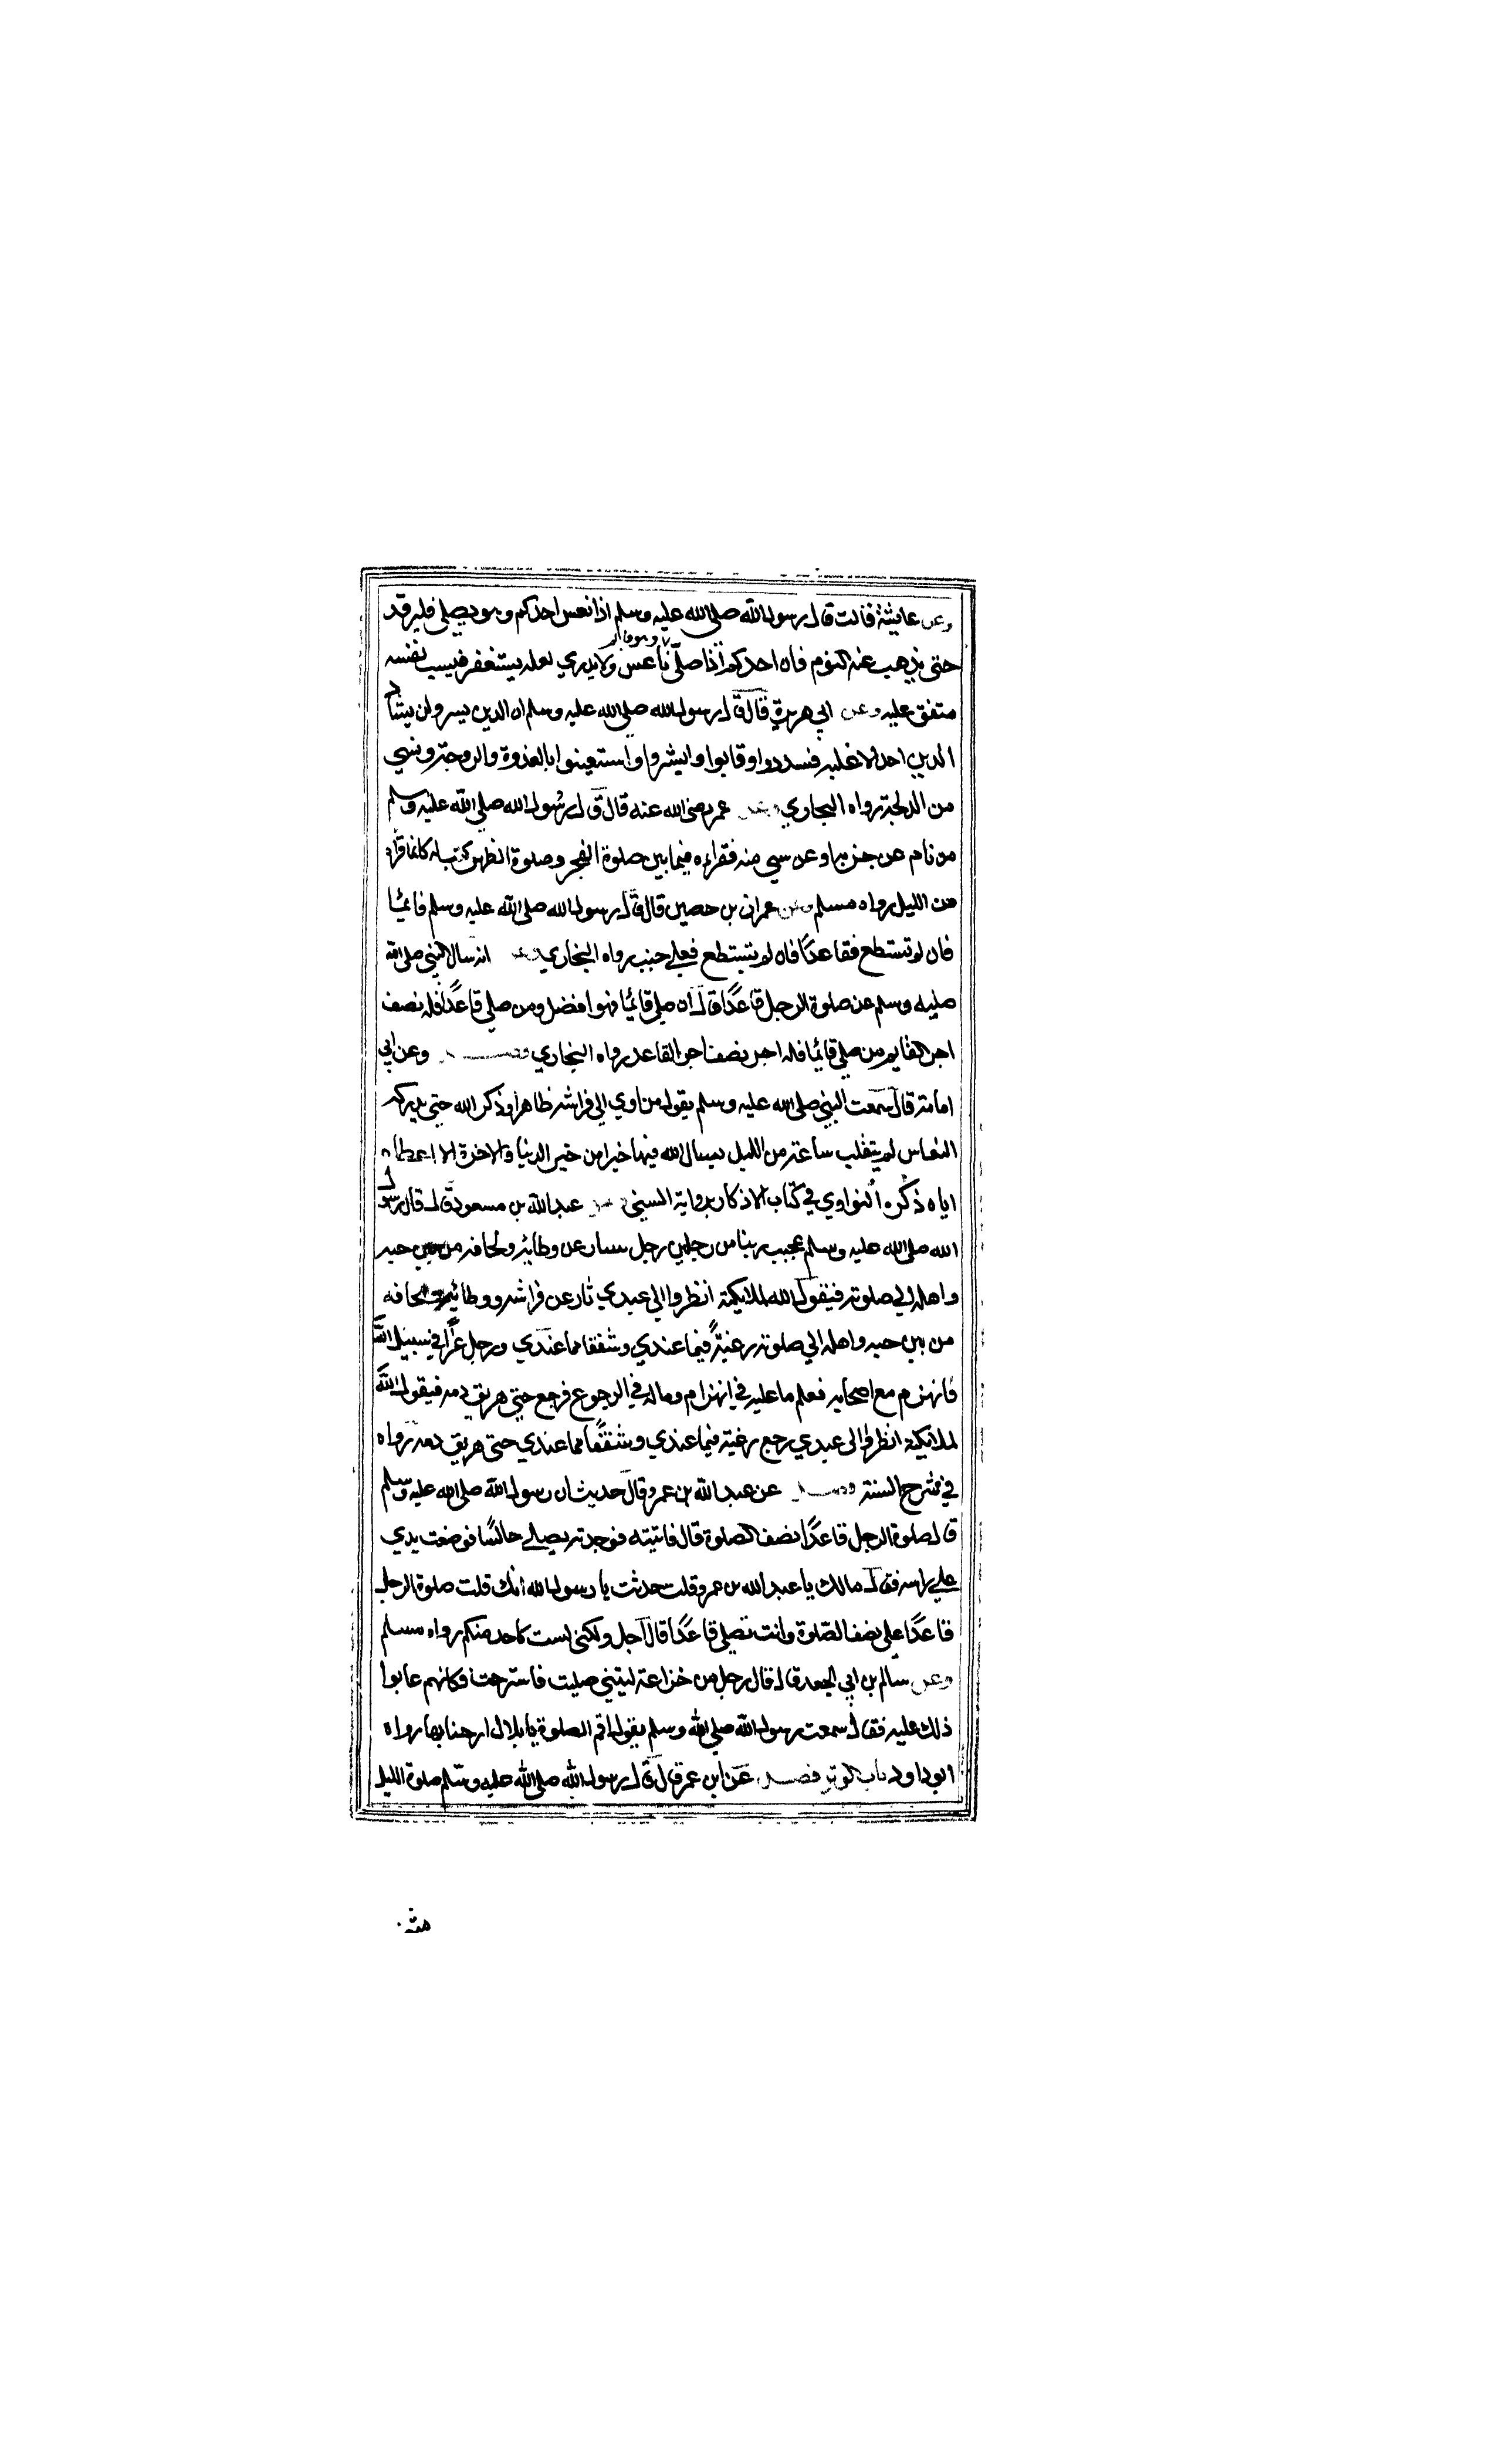 وعن عايشة قالت قال رسول الله صلى الله عليه وسلم اذا نعس احدكم وهو يصلي فليرقد
حتى يذهب عنه النوم فان احدكم اذا صلى وهو ناعس لا يدري لعله يستغفر فيسب نفسه
متفق عليه وعن ابي هريرة قال قال رسول الله صلى الله عليه وسلم ان الدين يسر ولن يشاد
الدين احد الا غلبه فسددوا وقابوا وابشروا واستعينوا بالغدوة والروحة وشي
من الدلجة رواه البخاري وعن عمر رضى الله عنه قال قال رسول الله صلى الله عليه وسلم
من نام عن حزبه او عن شي منه فقراءه فيما بين صلوة الفجر وصلوة الظهر كتب له كانما قراه
من الليل رواه مسلم وعن عمران بن حصين قال قال رسول الله صلى الله عليه وسلم قائما
فان لم تستطع فقاعدًا فان لم تستطع فعلى جنب رواه البخاري وعنه انه سال النبي صلى الله
عليه وسلم عن صلوة الرجل قاعدًا قال ان صلى قائما فهو افضل ومن صلى قاعدًا فله نصف
اجر القايم ومن صلى قائما فله اجر نصف اجر القاعد رواه البخاري وعن ابي
امامة قال سمعت النبي صلى الله عليه وسلم يقول من اوي الى فراشه طاهرا وذكر الله حتى يدركه
النعاس لم يتقلب ساعة من الليل يسال الله فيها خيرا من خير الدنيا والاخرة الا اعطاه
اياه ذكره النواوي في كتاب الاذكار برواية السني وعن عبد الله بن مسعود قال قال رسول
الله صلى الله عليه وسلم عجب ربنا من رجلين رجل سار عن وطائه ولحافه من بين حبه
واهله الى صلوته فيقول الله لملائكته انظروا الى عبدي ثار عن فراشه ووطائه ولحافه
من بين حبه واهله الى صلوته رغبةً فيما عندي وشفقا مما عندي ورجل غزا في سبيل الله
فانهزم مع اصحابه فعلم ما عليه في انهزام وماله في الرجوع فرجع حتى هريق دمه فيقول الله
لملائكته انظروا الى عبدي رجع رغبة فيما عندي وشفقًا مما عندي حتى هريق دمه رواه
في شرح السنة عن عبد الله بن عمرو قال حديث ان رسول الله صلى الله عليه وسلم
قال صلوة الرجل قاعدًا نصف الصلوة قال فاتيته فوجدته يصلي جالسًا فوضعت يدي
على راسه فقال مالك يا عبد الله بن عمرو قلت حدثت يا رسول الله انك قلت صلوة الرجل
قاعدًا على نصف الصلوة وانت تصلي قاعدًا قال اجل ولكنى لست كاحد منكم رواه مسلم
وعن سالم بن ابي الجعد قال قال رجل من خزاعة ليتني صليت فاسترحت فكانهم عابوا
ذلك عليه فقال سمعت رسول الله صلى الله وسلم يقول اقم الصلوة يا بلال ارحنا بها رواه
ابو داود باب الوتر فصل عن ابن عمر قال قال رسول الله صلى الله عليه وسلم صلوة الليل